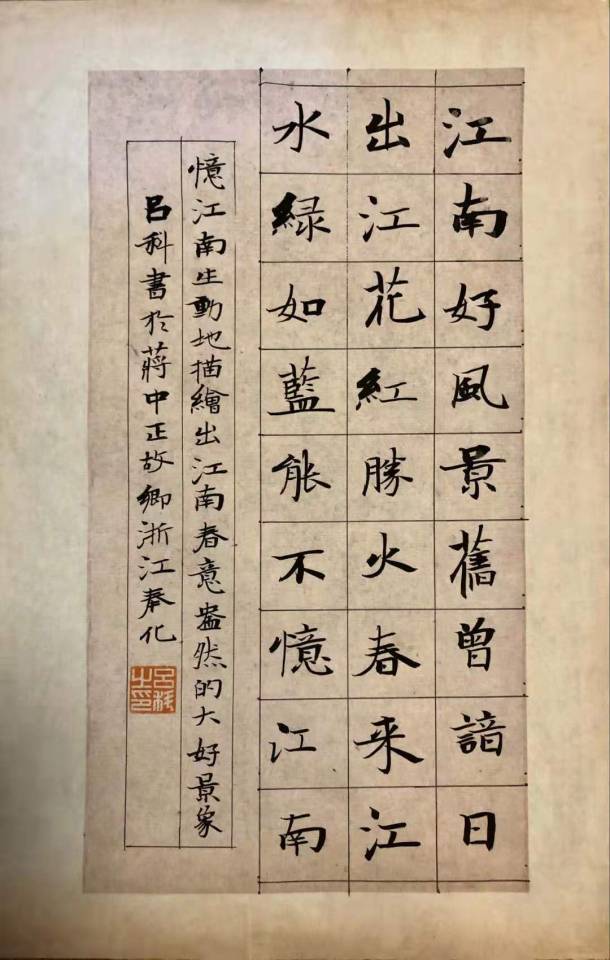 江南好風景舊曾諳日
出江花紅勝火春来江
水緑如藍能不憶江南
憶江南生動地描繪出江南春意盎然的大好景象
呂科書於蔣中正故鄉浙江奉化
呂科之印